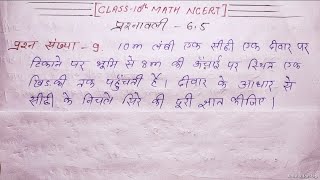 [CLASS-10th MATH NCERT]
प्रश्नावली - 6.5
प्रश्न संख्या - 9. 10m लंबी एक सीढ़ी एक दीवार पर
टिकाने पर भूमि से 8m की ऊँचाई पर स्थित एक
खिड़की तक पहुँचती है। दीवार के आधार से
सीढ़ी के निचले सिरे की दूरी ज्ञात कीजिए।